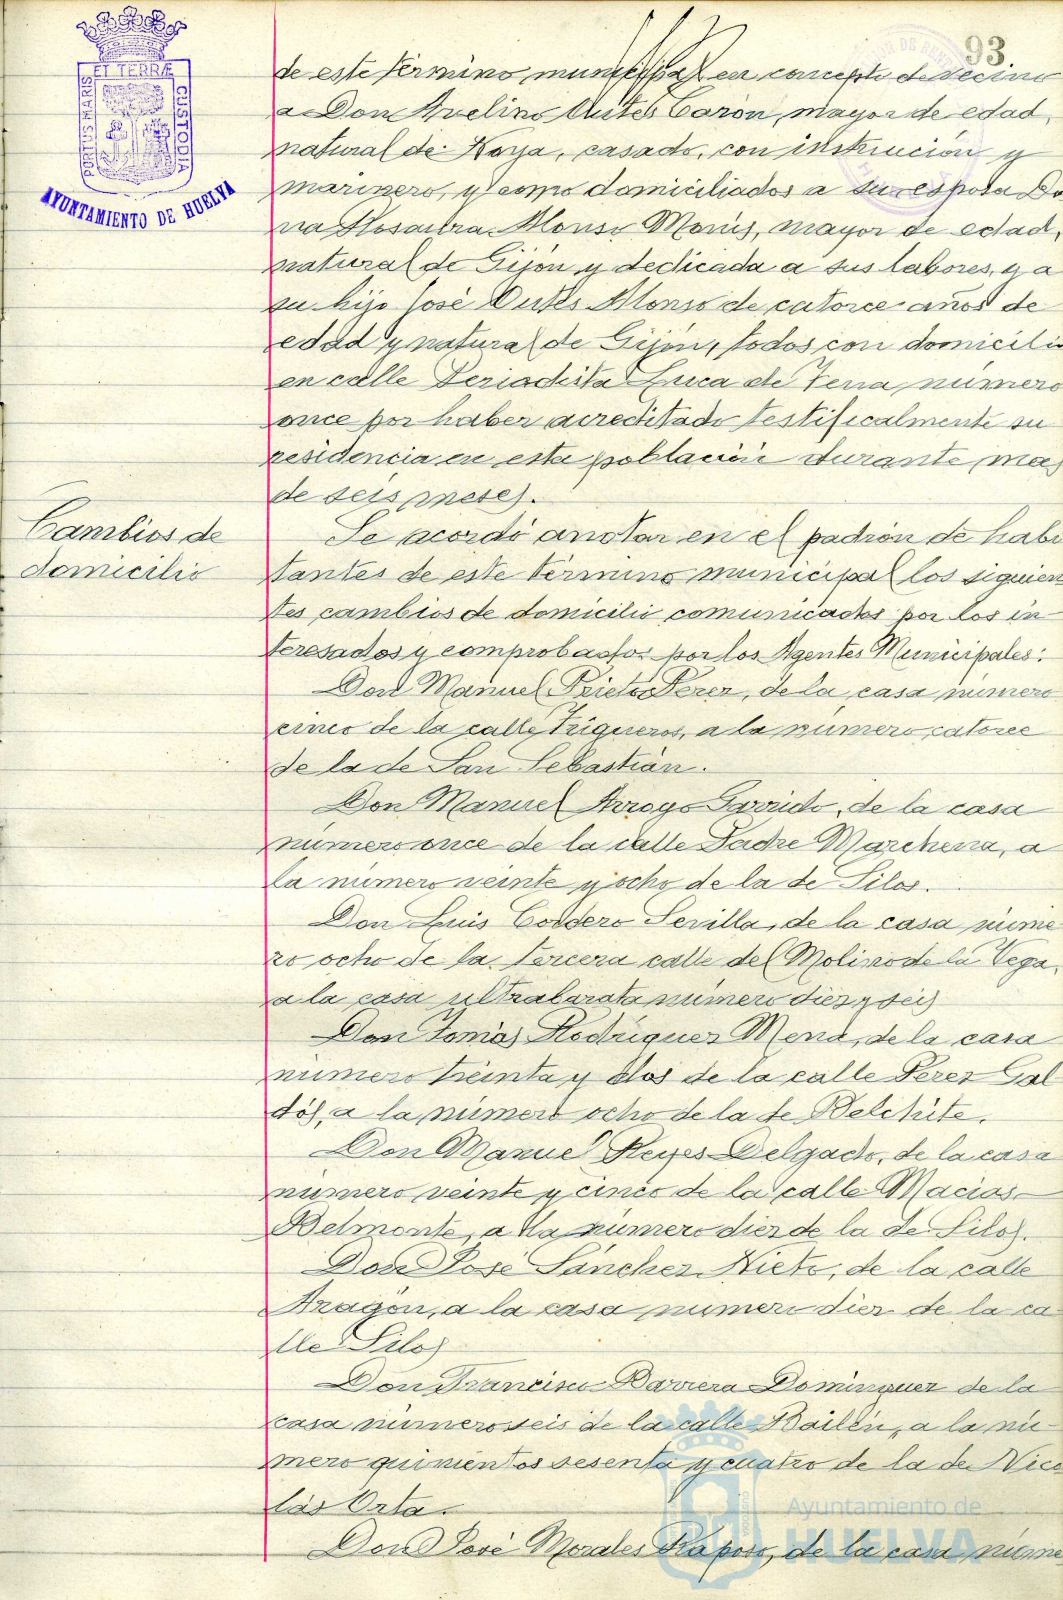 93
PORTUS MARIS ET TERRÆ CUSTODIA
AYUNTAMIENTO DE HUELVA
de este término municipal en concepto de vecino
a Don Avelino Outes Carón, mayor de edad,
natural de Noya, casado, con instrucción y
marinero, y como domiciliados a su esposa Do
ña Rosaura Alonso Monís, mayor de edad,
natural de Gijón y dedicada a sus labores, y a
su hijo José Outes Alonso de catorce años de
edad y natural de Gijón, todos con domicilio
en calle Periodista Luca de Tena, número
once por haber acreditado testificalmente su
residencia en esta población durante mas
de seis meses.
Cambios de
domicilio
Se acordó anotar en el padrón de habi
tantes de este término municipal los siguien
tes cambios de domicilio comunicados por los in
teresados y comprobados por los Agentes Municipales:
Don Manuel Prieto Perez, de la casa número
cinco de la calle Trigueros, a la número catorce
de la de San Sebastián.
Don Manuel Arroyo Garrido, de la casa
número once de la calle Padre Marchena, a
la número veinte y ocho de la de Silos.
Don Luis Cordero Sevilla, de la casa núme
ro ocho de la tercera calle del Molino de la Vega,
a la casa ultrabarata número diez y seis
Don Tomás Rodríguez Mena, de la casa
número treinta y dos de la calle Pérez Gal
dós, a la número ocho de la de Belchite.
Don Manuel Reyes Delgado, de la casa
número veinte y cinco de la calle Macias
Belmonte, a la número diez de la de Silos.
Don José Sánchez Nieto, de la calle
Aragón, a la casa número diez de la ca
lle Silos
Don Francisco Barrera Dominguez de la
casa número seis de la calle Bailén, a la nú
mero quinientos sesenta y cuatro de la de Nico
lás Orta.
Don José Morales Raposo, de la casa núme
Ayuntamiento de
HUELVA